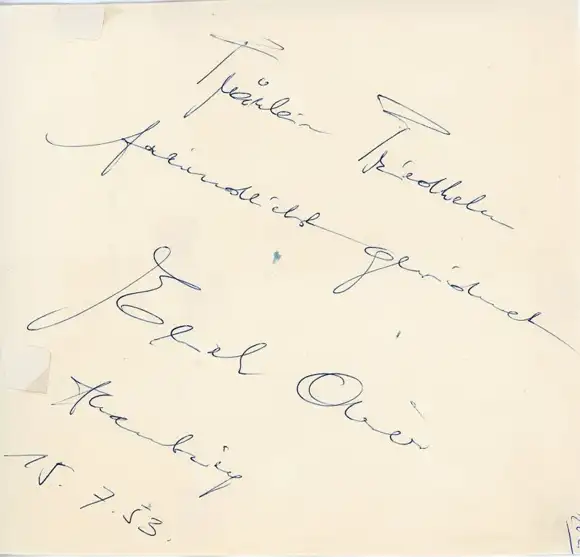 Fräulein Friedhelm
freundlichst gewidmet
Erich
Hamburg
15. 7. 53.